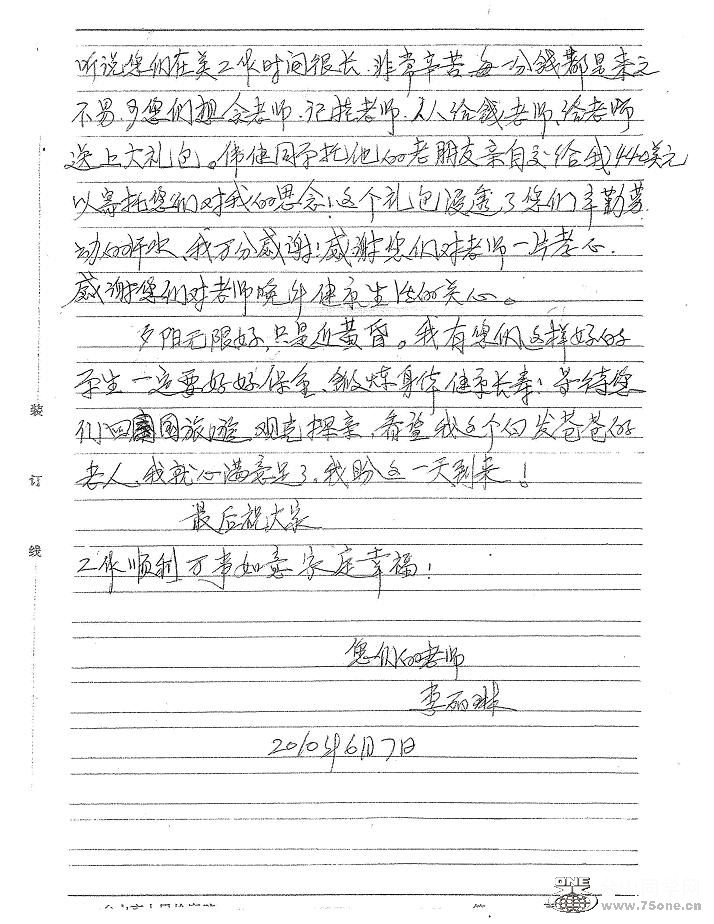 听说您们在美工作时间很长,非常辛苦每一分钱都是来之
不易,可您们想念老师,记挂老师,人人给钱老师,给老师
送上大礼包。伟健同学托他的老朋友亲自交给我440美元
以寄托您们对我的思念!这个礼包浸透了您们辛勤劳
动的汗水,我万分感谢!感谢您们对老师一片孝心.
感谢您们对老师晚年健康生活的关心。
夕阳无限好,只是近黄昏。我有您们这样好的
学生一定要好好保重,锻炼身体健康长寿!等待您
们回国旅游 观光探亲,看望我这个白发苍苍的
老人,我就心满意足了,我盼这一天到来!
最后祝大家
工作顺利 万事如意 家庭幸福!
您们的老师
李丽琳
2010年6月7日
装
订
线
ONE
www.75one.cn